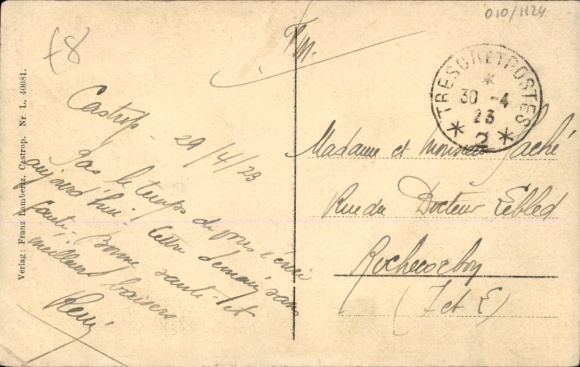 010/1124
F.M.
TRESOR ET POSTES
*
30 -4
23
* 2 *
Castrop - 29/4/23
Pas le temps de vous écrire
aujourd'hui. Lettre demain sans
faute. Bonne santé et
meilleurs baisers
René
Madame et Monsieur Gaché
Rue du Docteur Lebled
Rochecorbon
(I et L)
Verlag: Franz Lambertz, Castrop. Nr. L. 40081.